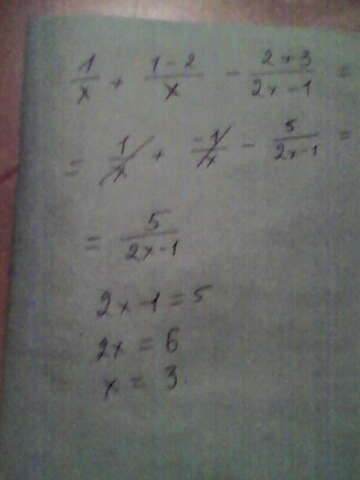 1/x + 1-2/x - 2+3/2x-1 =
= 1/x + -1/x - 5/2x-1 =
= 5/2x-1
2x-1=5
2x = 6
x = 3